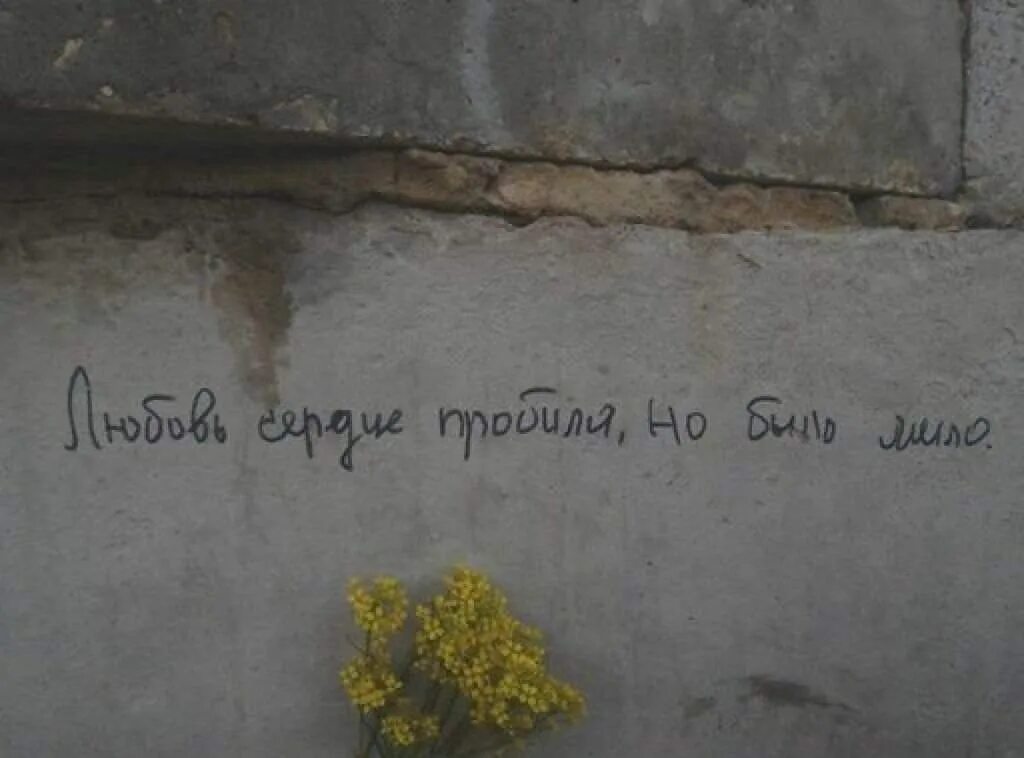 Любовь сердце пробила, но было мило.